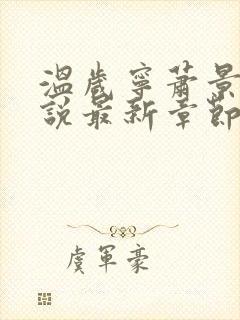 溫歲寧蕭景
說最新章節
虞軍豪